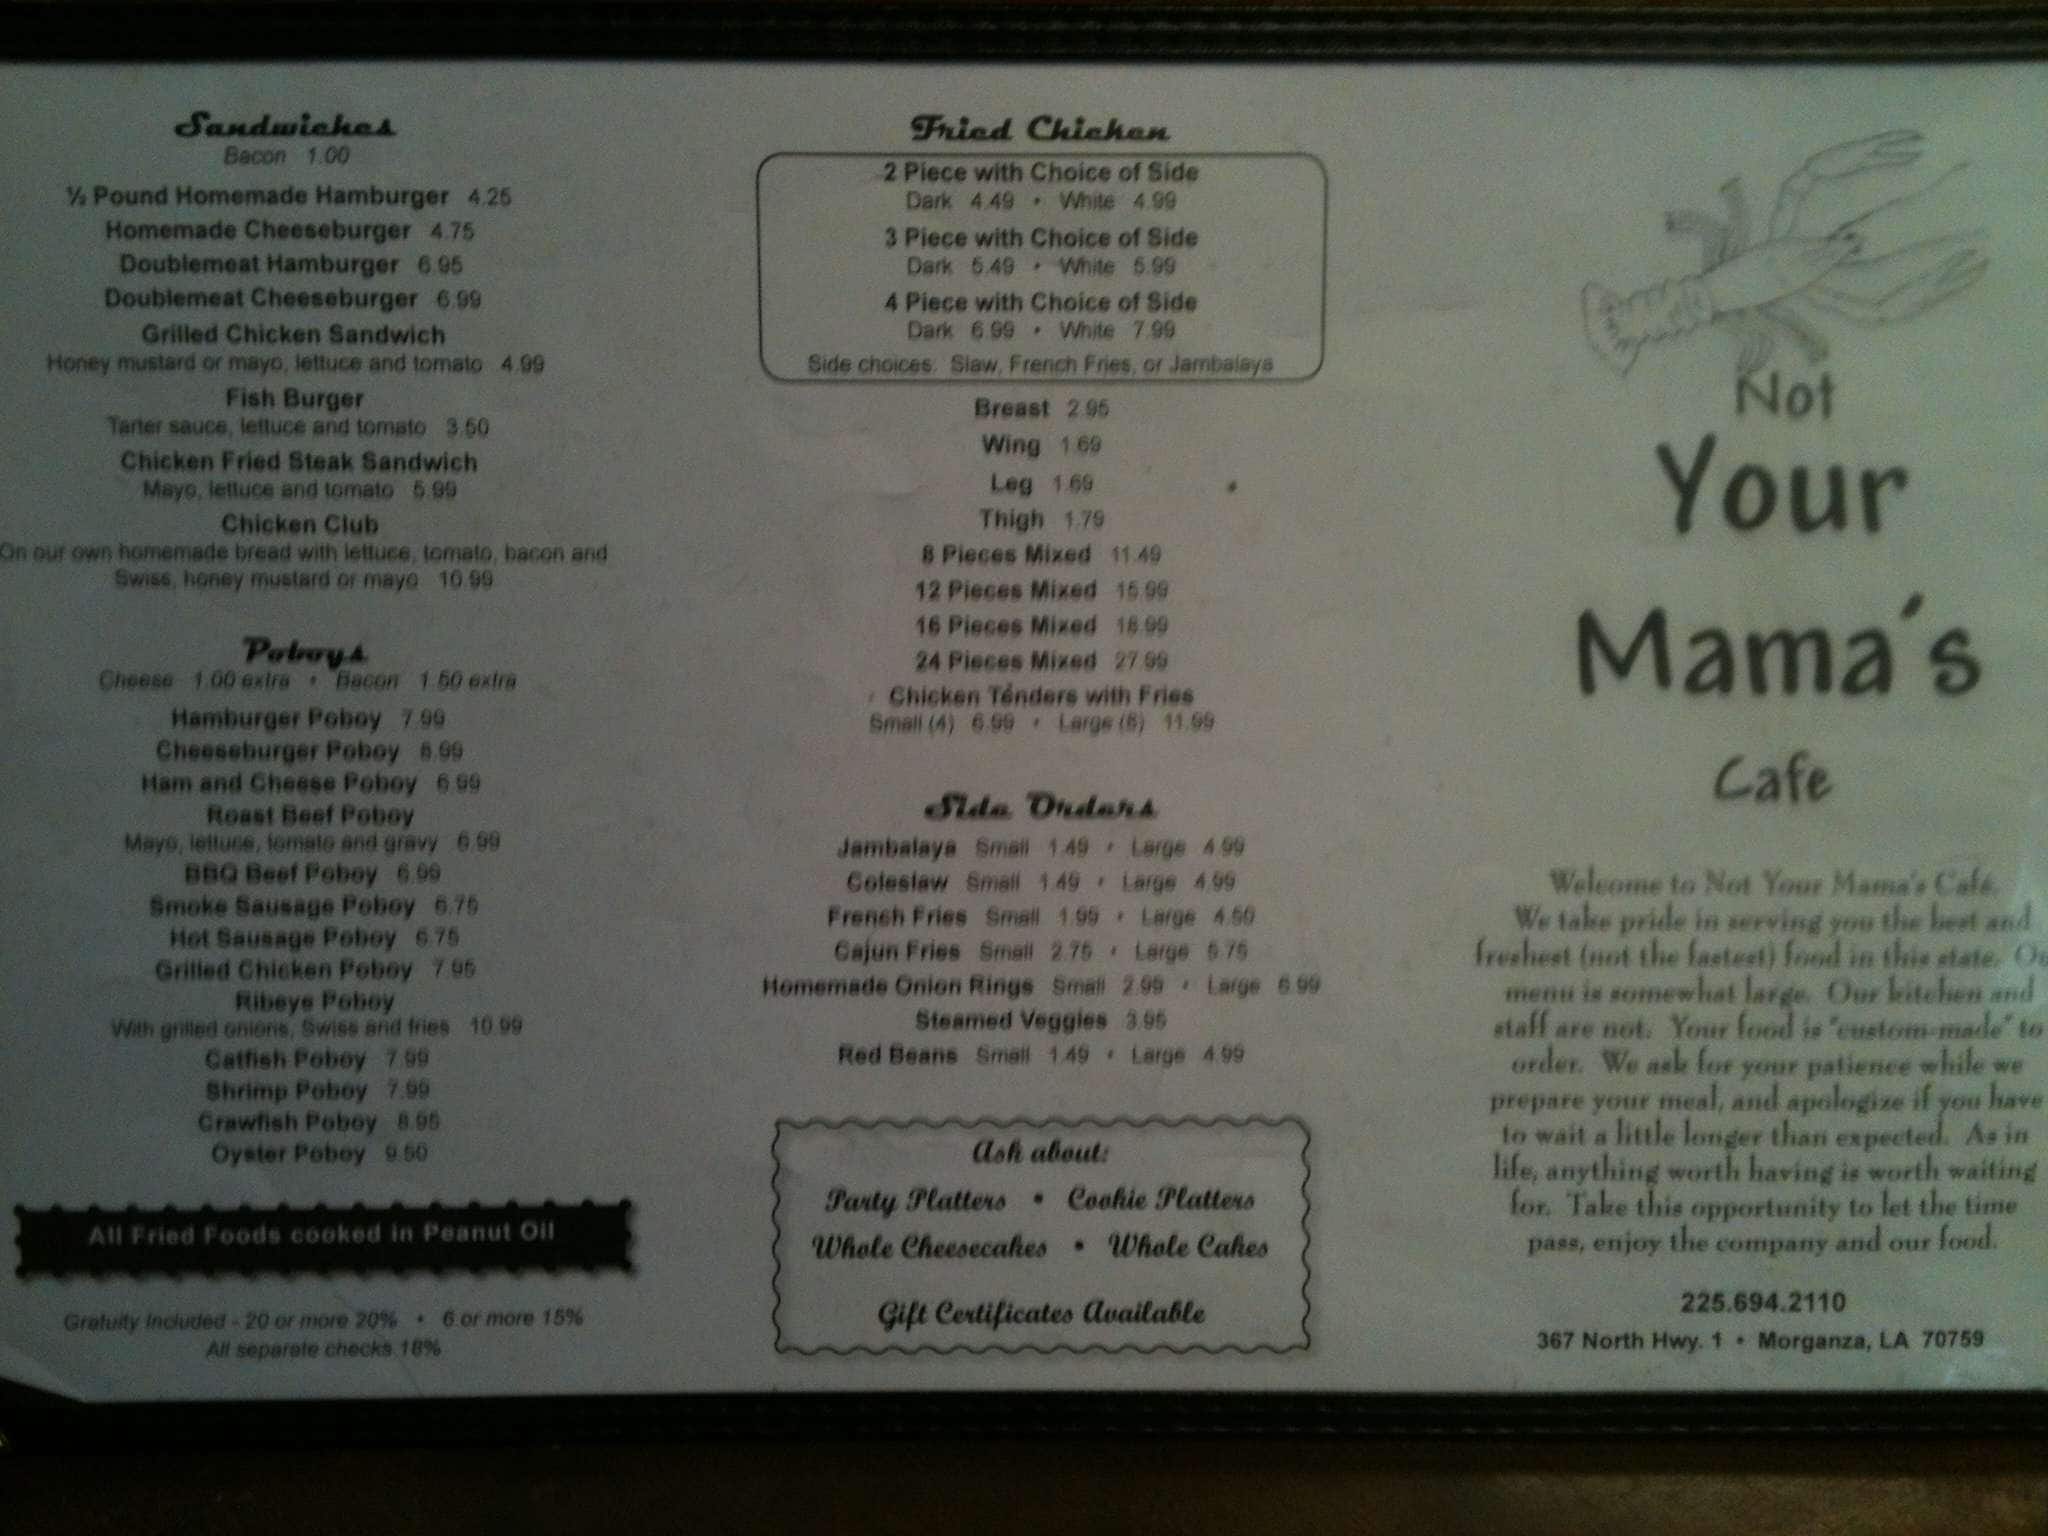 Sandwiches
Bacon 1.00
½ Pound Homemade Hamburger 4.25
Homemade Cheeseburger 4.75
Doublemeat Hamburger 6.95
Doublemeat Cheeseburger 6.99
Grilled Chicken Sandwich
Honey mustard or mayo, lettuce and tomato 4.99
Fish Burger
Tarter sauce, lettuce and tomato 3.50
Chicken Fried Steak Sandwich
Mayo, lettuce and tomato 5.99
Chicken Club
On our own homemade bread with lettuce, tomato, bacon and
Swiss, honey mustard or mayo 10.99
Poboys
Cheese 1.00 extra • Bacon 1.50 extra
Hamburger Poboy 7.99
Cheeseburger Poboy 8.99
Ham and Cheese Poboy 6.99
Roast Beef Poboy
Mayo, lettuce, tomato and gravy 6.99
BBQ Beef Poboy 6.99
Smoke Sausage Poboy 6.75
Hot Sausage Poboy 6.75
Grilled Chicken Poboy 7.95
Ribeye Poboy
With grilled onions, Swiss and fries 10.99
Catfish Poboy 7.99
Shrimp Poboy 7.99
Crawfish Poboy 8.95
Oyster Poboy 9.50
All Fried Foods cooked in Peanut Oil
Gratuity Included - 20 or more 20% • 6 or more 15%
All separate checks 18%
Fried Chicken
2 Piece with Choice of Side
Dark 4.49 • White 4.99
3 Piece with Choice of Side
Dark 5.49 • White 5.99
4 Piece with Choice of Side
Dark 6.99 • White 7.99
Side choices: Slaw, French Fries, or Jambalaya
Breast 2.95
Wing 1.69
Leg 1.69
Thigh 1.79
8 Pieces Mixed 11.49
12 Pieces Mixed 15.99
16 Pieces Mixed 18.99
24 Pieces Mixed 27.99
Chicken Tenders with Fries
Small (4) 6.99 • Large (8) 11.99
Side Orders
Jambalaya Small 1.49 • Large 4.99
Coleslaw Small 1.49 • Large 4.99
French Fries Small 1.99 • Large 4.50
Cajun Fries Small 2.75 • Large 5.75
Homemade Onion Rings Small 2.99 • Large 6.99
Steamed Veggies 3.95
Red Beans Small 1.49 • Large 4.99
Ask about:
Party Platters • Cookie Platters
Whole Cheesecakes • Whole Cakes
Gift Certificates Available
Not
Your
Mama's
Cafe
Welcome to Not Your Mama's Café.
We take pride in serving you the best and
freshest (not the fastest) food in this state.
menu is somewhat large. Our kitchen and
staff are not. Your food is "custom-made" to
order. We ask for your patience while we
prepare your meal, and apologize if you have
to wait a little longer than expected. As in
life, anything worth having is worth waiting
for. Take this opportunity to let the time
pass, enjoy the company and our food.
225.694.2110
367 North Hwy. 1 • Morganza, LA 70759